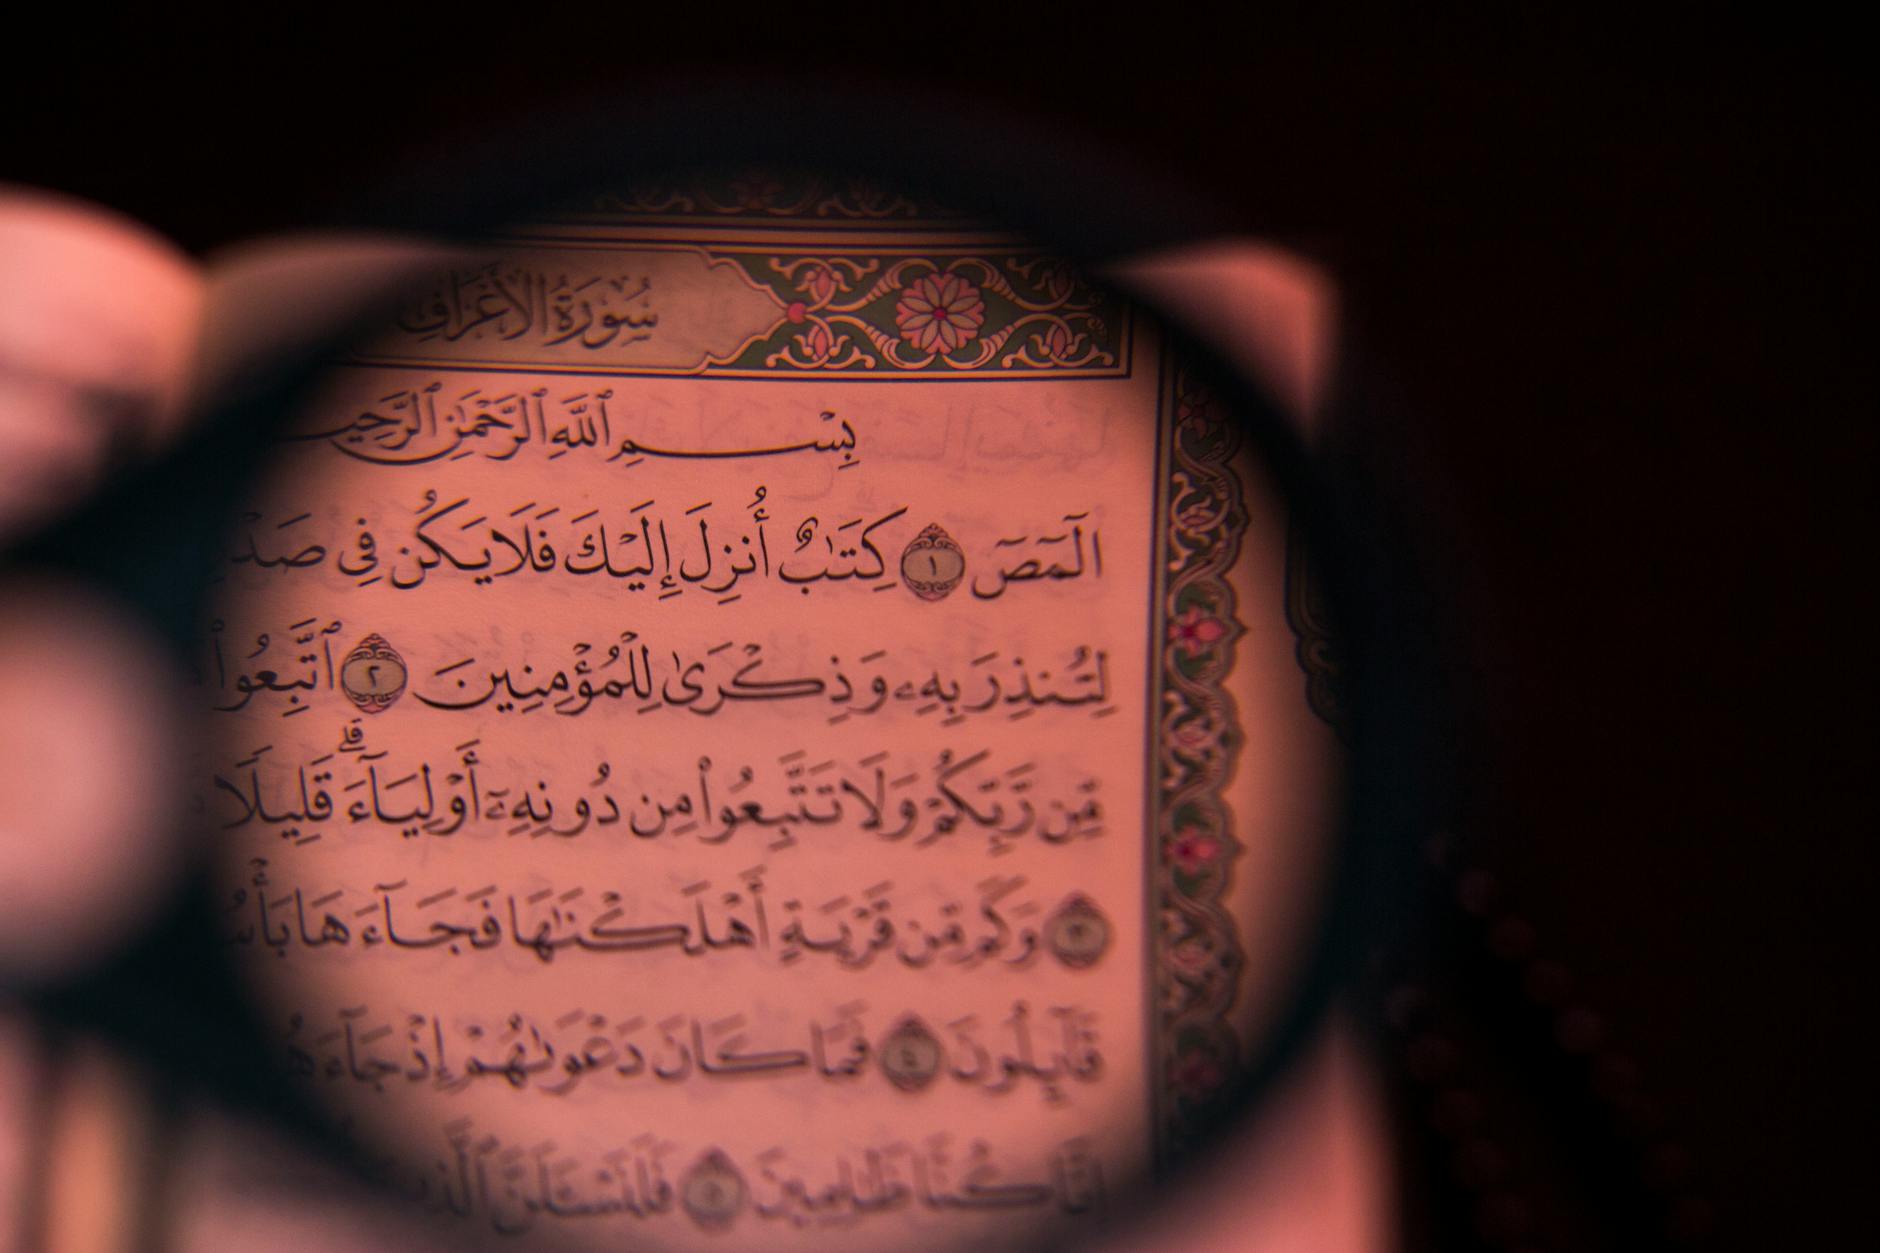 سُورَةُ الْأَعْرَافِ
بِسْمِ ٱللَّهِ ٱلرَّحْمَٰنِ
الٓمٓصٓ ١ كِتَٰبٌ أُنزِلَ إِلَيْكَ فَلَا يَكُن فِى
لِتُنذِرَ بِهِۦ وَذِكْرَىٰ لِلْمُؤْمِنِينَ ٢ ٱتَّبِعُوا۟
مِّن رَّبِّكُمْ وَلَا تَتَّبِعُوا۟ مِن دُونِهِۦٓ أَوْلِيَآءَ ۗ قَلِيلًا
٣ وَكَم مِّن قَرْيَةٍ أَهْلَكْنَٰهَا فَجَآءَهَا
قَآئِلُونَ ٤ فَمَا كَانَ دَعْوَىٰهُمْ إِذْ
إِنَّا كُنَّا ظَٰلِمِينَ ٥ فَلَنَسْـَٔلَنَّ